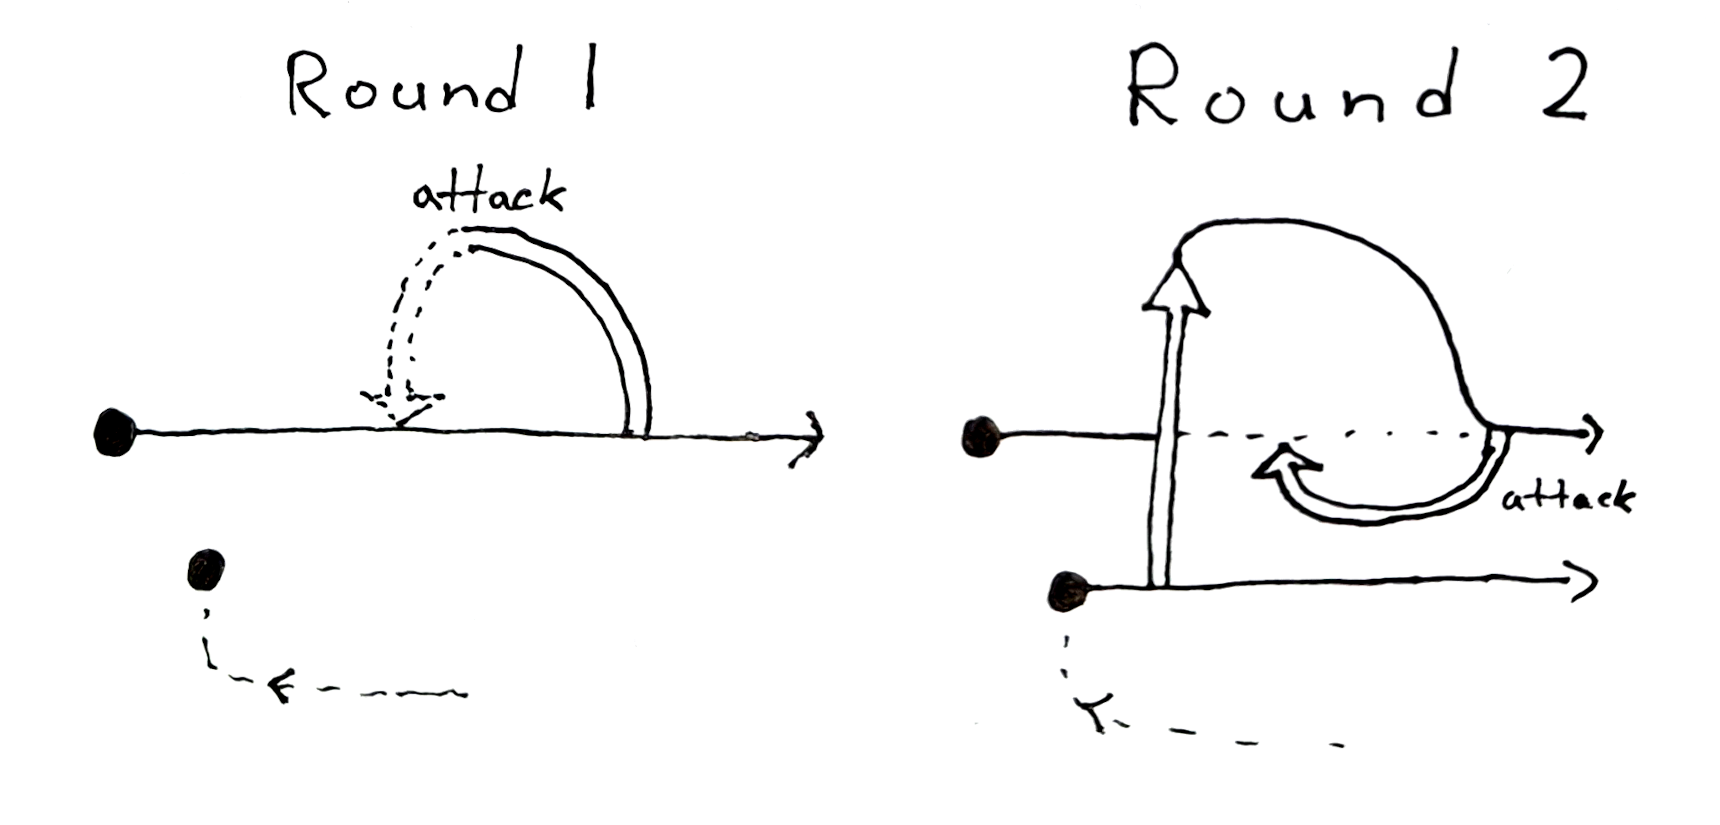 Round 1
attack
Round 2
attack